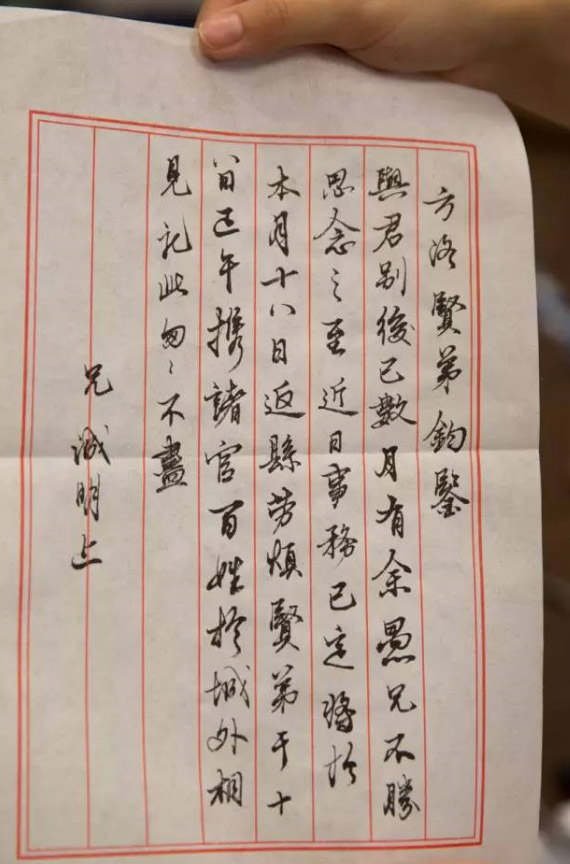 方洛賢弟鈞鑒
與君别後已數月有余愚兄不勝
思念之至近日事務已定將於
本月十八日返縣劳煩賢弟于十
八日正午攜諸官百姓於城外相
見記此匆匆不盡
兄誠明上